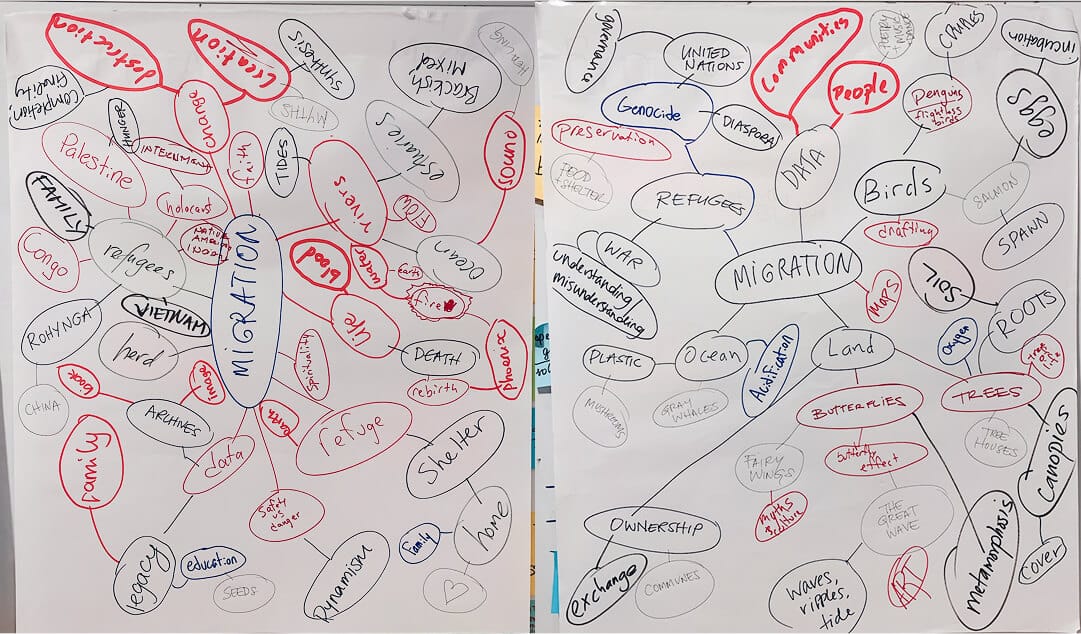 destruction
Creation
SYNTHESIS
MYTHS
Completion,
finality
HUNGER
change
INTERNMENT
faith
TIDES
Brackish
Mixed
HEALING
estuaries
SOUND
rivers
Flow
Palestine
holocaust
FAMILY
refugees
Congo
MIGRATION
blood
water
earth
Ocean
fire
VIETNAM
life
ROHYNGA
hard
DEATH
phoenix
rebirth
Spirituality
book
image
CHINA
ARCHIVES
earth
refuge
Shelter
family
data
Safety
vs
danger
home
family
legacy
education
SEEDS
Dynamism
governance
UNITED
NATIONS
Communities
POETRY
+ MUSIC
CAMELS
incubation
People
Genocide
DIASPORA
Penguins
flightless
birds
eggs
preservation
DATA
FOOD
+ SHELTER
REFUGEES
Birds
SALMON
drafting
SPAWN
WAR
understanding
misunderstanding
MIGRATION
MAPS
SOIL
ROOTS
Oxygen
Tree
of
life
PLASTIC
Ocean
Acidification
Land
MUSHROOMS
GRAY
WHALES
BUTTERFLIES
TREES
TREE
HOUSES
Canopies
FAIRY
WINGS
butterfly
effect
myths
& culture
THE
GREAT
WAVE
OWNERSHIP
exchange
COMMUNES
waves,
ripples,
tide
ART
metamorphosis
cover